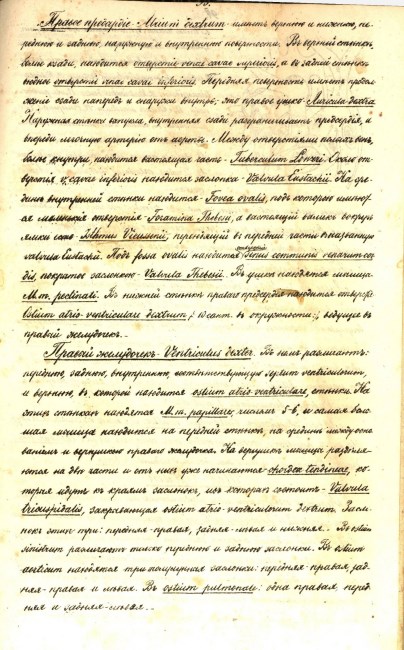 Правое предсердіе - Atrium dextrum - имѣетъ верхнюю и нижнюю, пе-
реднюю и заднюю, наружную и внутреннюю поверхности. Въ верхней стѣнкѣ,
болѣе кзади, находится отверстіе venae cavae superioris, а въ задней стѣнкѣ
отверстіе venae cavae inferioris. Передняя поверхность имѣетъ продол-
женіе сзади напередъ и снаружи внутрь, это правое ушко - Auricula dextra
Наружная стѣнка выпукла, внутренняя сзади разграничиваетъ предсердія, а
впереди легочную артерію отъ аорты. Между отверстіями полыхъ венъ,
болѣе кнутри, находится часть - Tuberculum Loweri. Около от-
верстія v. cavae inferioris находится заслонка - Valvula Eustachii. На сре-
динѣ внутренней стѣнки находится - Fovea ovalis, подъ которою
маленькія отверстія - Foramina Thebesii, а валикъ вокругъ
ямки есть - Isthmus Vieussenii, переходящій въ передней части въ названную
valvula Eustachii. Подъ fossa ovalis находится отверстіе Venae communis coronariae cor-
dis, покрытое заслонкою - Valvula Thebesii. Въ ушкѣ находятся мышцы
M.m. pectinati. Въ нижней стѣнкѣ праваго предсердія находится отверстіе
Ostium atrio-ventriculare dextrum, /: 10 сант. въ окружности :/, ведущее въ
правый желудочекъ.
Правый желудочекъ - Ventriculus dexter. Въ немъ различаютъ:
переднюю, заднюю, внутреннюю, соотвѣтствующую septum ventriculorum,
и верхнюю, въ которой находится ostium atrio-ventriculare, стѣнки. На
этихъ стѣнкахъ находятся M.m. papillares, числомъ 5-6, и самая боль-
шая мышца находится на передней стѣнкѣ, на срединѣ между осно-
ваніемъ и верхушкою праваго желудочка. На верхушкѣ мышцы раздѣля-
ются на двѣ части и отъ нихъ уже начинаются chordae tendineae, ко-
торыя идутъ къ краямъ заслонокъ, изъ которыхъ состоитъ - Valvula
tricuspidalis, закрывающая ostium atrio-ventriculorum dextrum. Засло-
нокъ этихъ три: передняя-правая, задняя-лѣвая и нижняя. Въ ostium
sinistrum различаютъ только переднюю и заднюю заслонки. Въ ostium
aorticum находятся три полулунныя заслонки: передняя-правая, зад-
няя-правая и лѣвая. Въ ostium pulmonale: одна правая, перед-
няя и задняя-лѣвая.